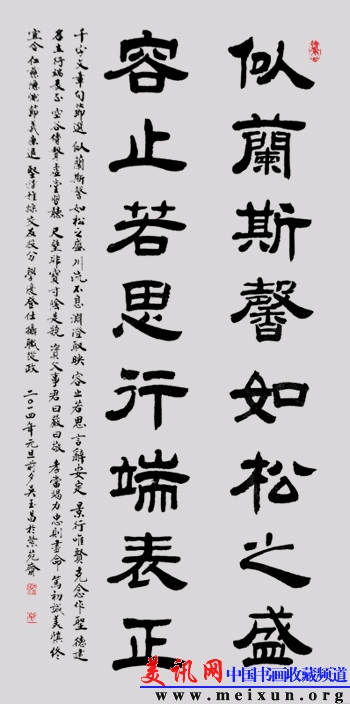 似蘭斯馨如松之盛
容止若思行端表正
千字文章句節選 似蘭斯馨如松之盛 川流不息淵澄取映 容止若思言辭安定 景行唯賢克念作聖 德建
名立行端表正 空谷傳聲虛堂習聽 尺璧非寶寸陰是競 資父事君曰嚴曰敬 孝當竭力忠則盡命 篤初誠美慎終
宜令 仁慈隱惻節義廉退 堅持雅操交友投分 學優登仕攝職從政 二〇一四年元旦前夕吴玉昌於紫苑齋
美讯网 中国书画收藏频道
www.meixun.org